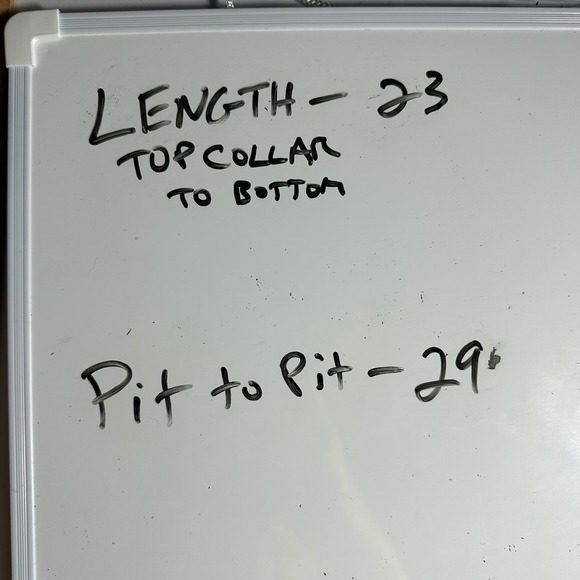 LENGTH - 23
TOP COLLAR
TO BOTTOM
Pit to Pit - 29